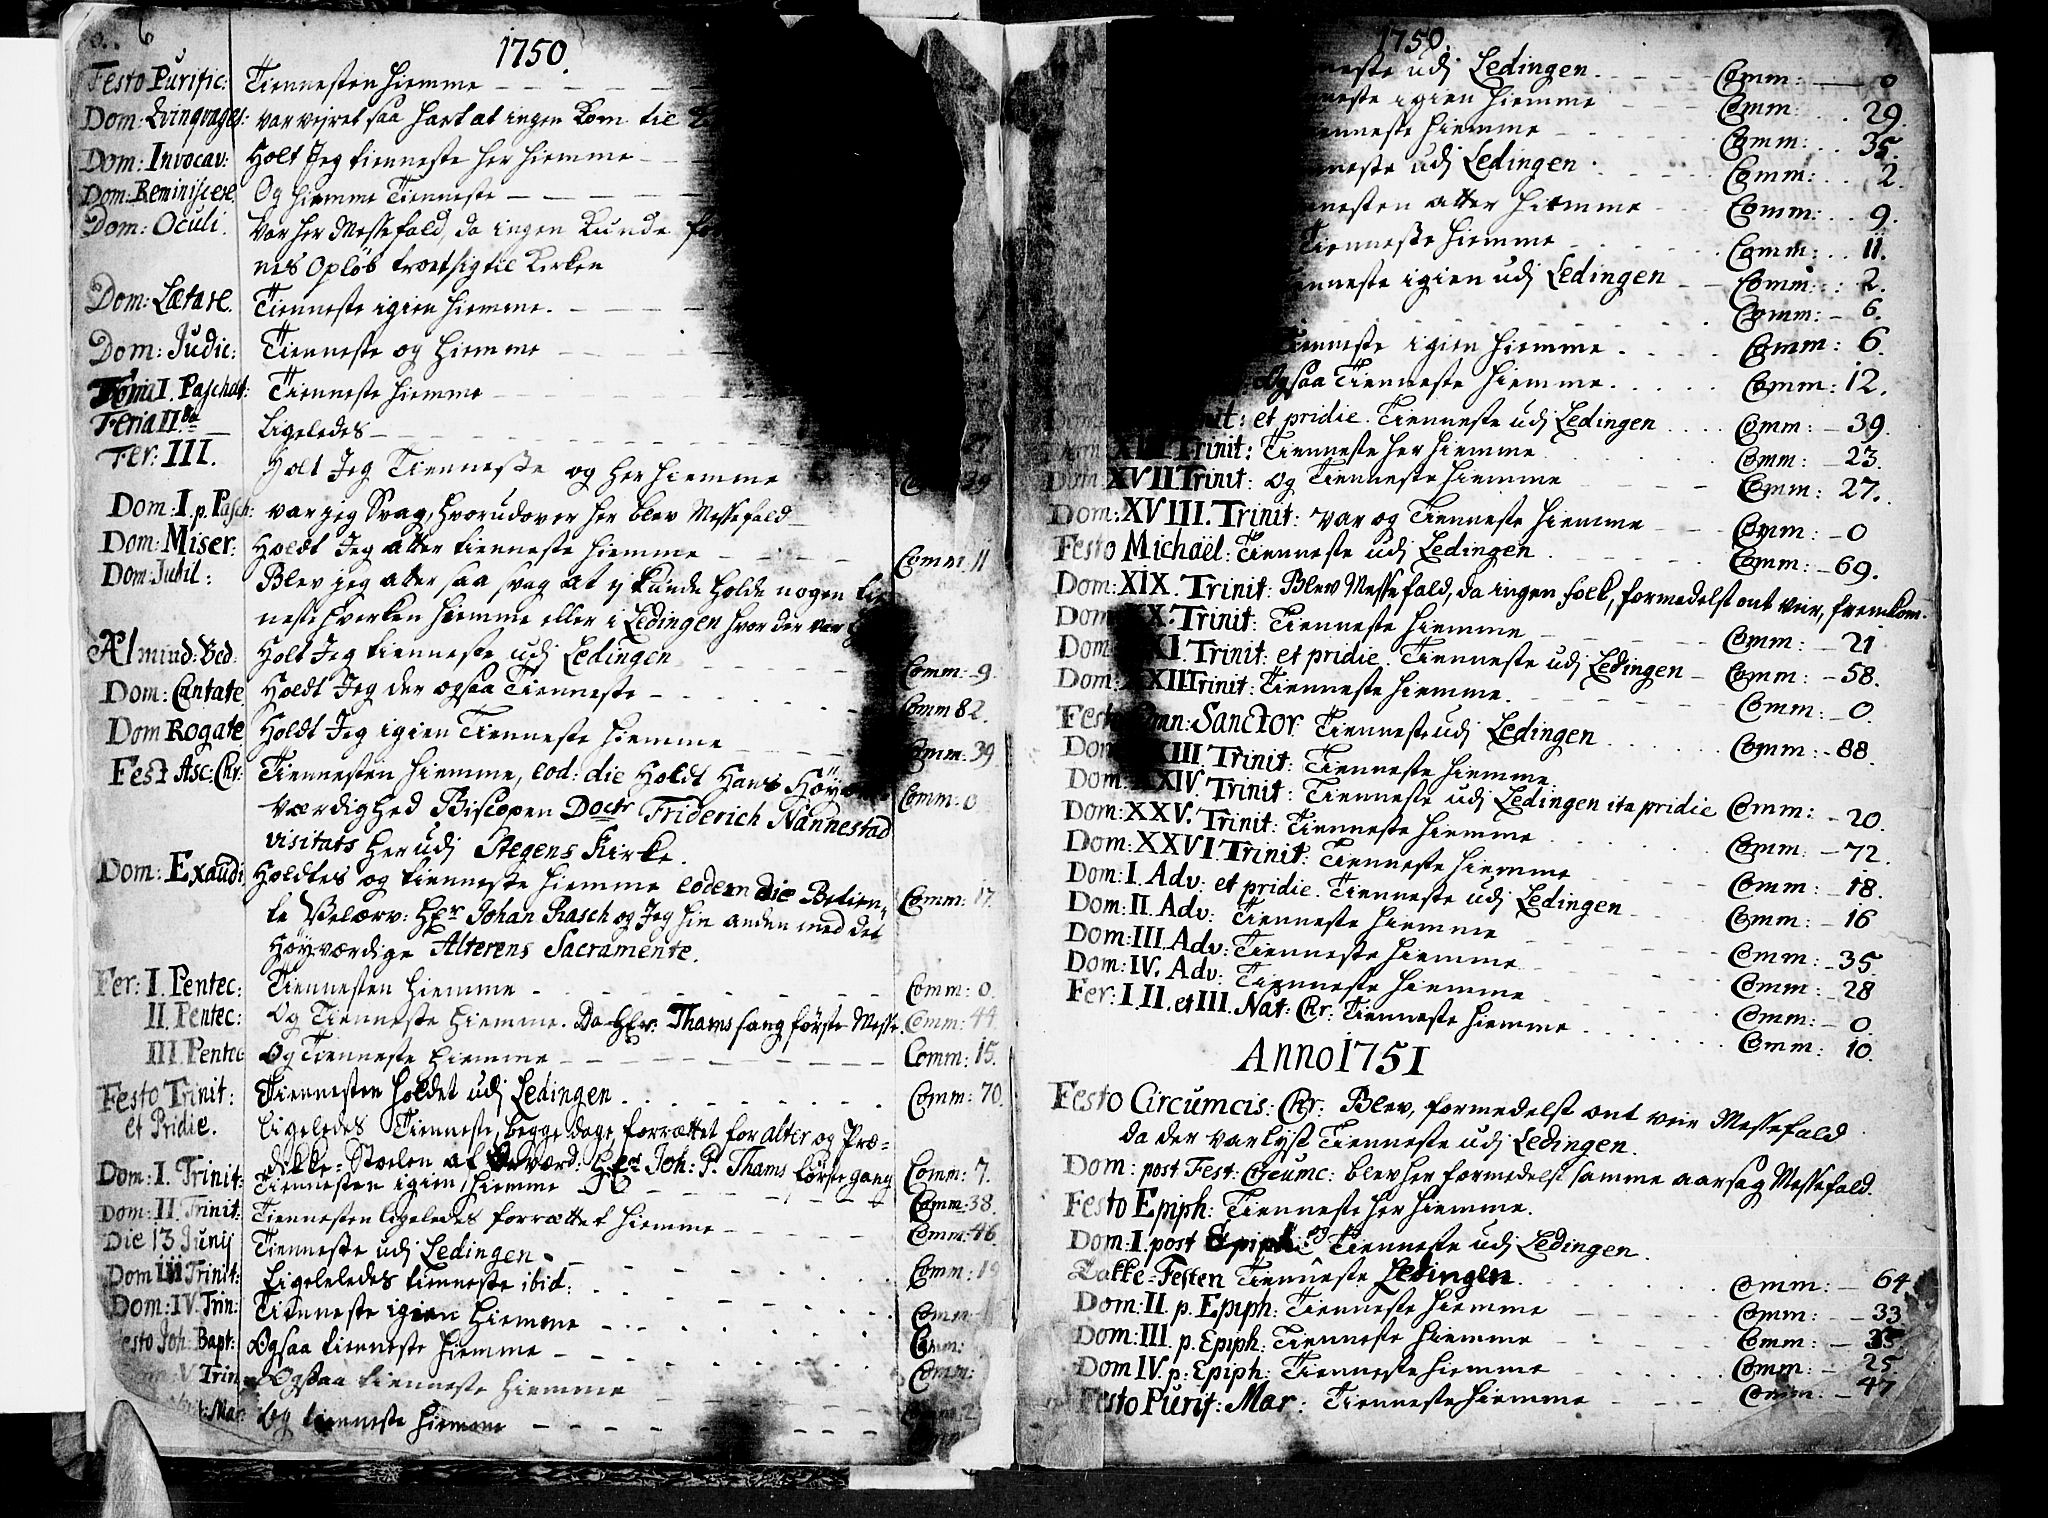 6
1750.
Festo Purific: Tiennesten hiemme
Dom: Qvinqvages: var vejret saa hart at ingen kom til
Dom: Invocav: Holt Jeg tienneste her hiemme
Dom: Reminiscere. Og hiemme Tienneste
Dom: Oculi. Var her Messefald, da ingen kunde
nes Opløb træt sig til Kirken
Dom: Lætare. Tienneste igien hiemme.
Dom: Judic: Tienneste og hiemme
Feria I. Paschat: Tienneste hiemme
Feria II da Ligeledes
Fer: III. Holt Jeg Tienneste og her hiemme 29
Dom: I. p. Pasch: var jeg Svag, hvorudover her blev Messefald
Dom: Miser: Holdt Jeg atter tienneste hiemme Comm: 11
Dom: Jubil: Blev jeg atter saa svag at ej kunde holde nogen tien
neste hverken hiemme eller i Ledingen hvor der var
Almind: Bed: Holt Jeg tienneste udj Ledingen Comm: 9.
Dom: Cantate Holdt Jeg der ogsaa Tienneste Comm 82.
Dom Rogate Holdt Jeg igien Tienneste hiemme Comm: 39
Fest Asc: Chr: Tiennesten hiemme, eod: die Holdt Hans Höyær Comm: 0
værdighed Biscopen Doctr Friderich Nannestad
visitats her udj Stegens Kirke.
Dom: Exaudi Holdtes og tienneste hiemme eodem die Betien- Comm: 17.
te Velærv: Her Johan Rasch og Jeg hin anden med det
Höyværdige Alterens Sacramente.
Fer: I. Pentec: Tiennesten hiemme Comm: 0.
II. Pentec: Og Tienneste hiemme. Da Her: Thams sang første Messe. Comm: 44.
III. Pentec Og Tienneste hiemme Comm: 15.
Festo Trinit: Tiennesten holdet udj Ledingen Comm: 70.
et Pridie. Ligeledes Tienneste, begge dage, forrættet for alter og Præ=
dikke=Stoelen af Velærværd: Her Joh: P. Thams første gang
Dom: I. Trinit: Tiennesten igien hiemme Comm: 7.
Dom: II. Trinit: Tiennesten ligeledes forrættet hiemme Comm: 38.
Die 13 Junij Tienneste udj Ledingen Comm: 46.
Dom III Trinit: Ligeleledes tienneste ibid: Comm:
Dom: IV. Trin: Tienneste igien hiemme Comm
Festo Joh: Bapt: Ogsaa tienneste hiemme Comm:
V Trin Ogsaa tienneste hiemme Comm:
Mar: Og tienneste hiemme
1750. 7
neste udj Ledingen. Comm: 0
neste igien hiemme Comm 29.
enneste hiemme Comm: 35.
neste udj Ledingen Comm: 2.
nesten atter hiemme Comm: 9.
Tienneste hiemme Comm: 11.
enneste igien udj Ledingen Comm: 2.
Comm: 6.
Tienneste igien hiemme Comm: 6.
Ogsaa Tienneste hiemme Comm: 12.
nit: et pridie. Tienneste udj Ledingen Comm: 39.
Trinit: Tienneste her hiemme Comm: 23.
Dom XVII Trinit: og Tienneste hiemme Comm: 27.
Dom: XVIII. Trinit: Var og Tienneste hiemme Comm: 0
Festo Michaël: Tienneste udj Ledingen Comm: 69.
Dom: XIX. Trinit: Blev Messefald, da ingen folk, formedelst ont veir, fremkom.
Dom XX. Trinit: Tienneste hiemme Comm: 21
Dom XXI. Trinit: et pridie. Tienneste udj Ledingen Comm: 58.
Dom: XXII Trinit: Tienneste hiemme. Comm: 0.
Festo Omn: Sanctor Tienneste udj Ledingen Comm: 88.
Dom XXIII. Trinit: Tienneste hiemme
Dom: XXIV. Trinit: Tienneste udj Ledingen ita pridie Comm: 20.
Dom: XXV. Trinit: Tienneste hiemme Comm: 72.
Dom: XXVI Trinit: Tienneste hiemme Comm: 18.
Dom: I. Adv: et pridie. Tienneste udj Ledingen Comm: 16
Dom: II. Adv: Tienneste hiemme Comm: 35.
Dom: III. Adv: Tienneste hiemme Comm: 28
Dom: IV. Adv: Tienneste hiemme Comm: 0.
Fer: I. II. et III. Nat: Chr: Tienneste hiemme Comm: 10.
Anno 1751
Festo Circumcis: Chr: Blev, formedelst ont veir Messefald
da der var lyst Tienneste udj Ledingen.
Dom: post Fest: Circumc: blev her formedelst samme aarsag Messefald.
Festo Epiph: Tienneste her hiemme.
Dom: I. post Epiph: Tienneste udj Ledingen.
Takke=Festen Tienneste Ledingen Comm: 64.
Dom: II. p. Epiph: Tienneste hiemme Comm: 33
Dom: III. p. Epiph: Tienneste hiemme Comm: 35
Dom IV. p: Epiph: Tienneste hiemme Comm: 25
Festo Purif: Mar: Tienneste hiemme Comm: 47